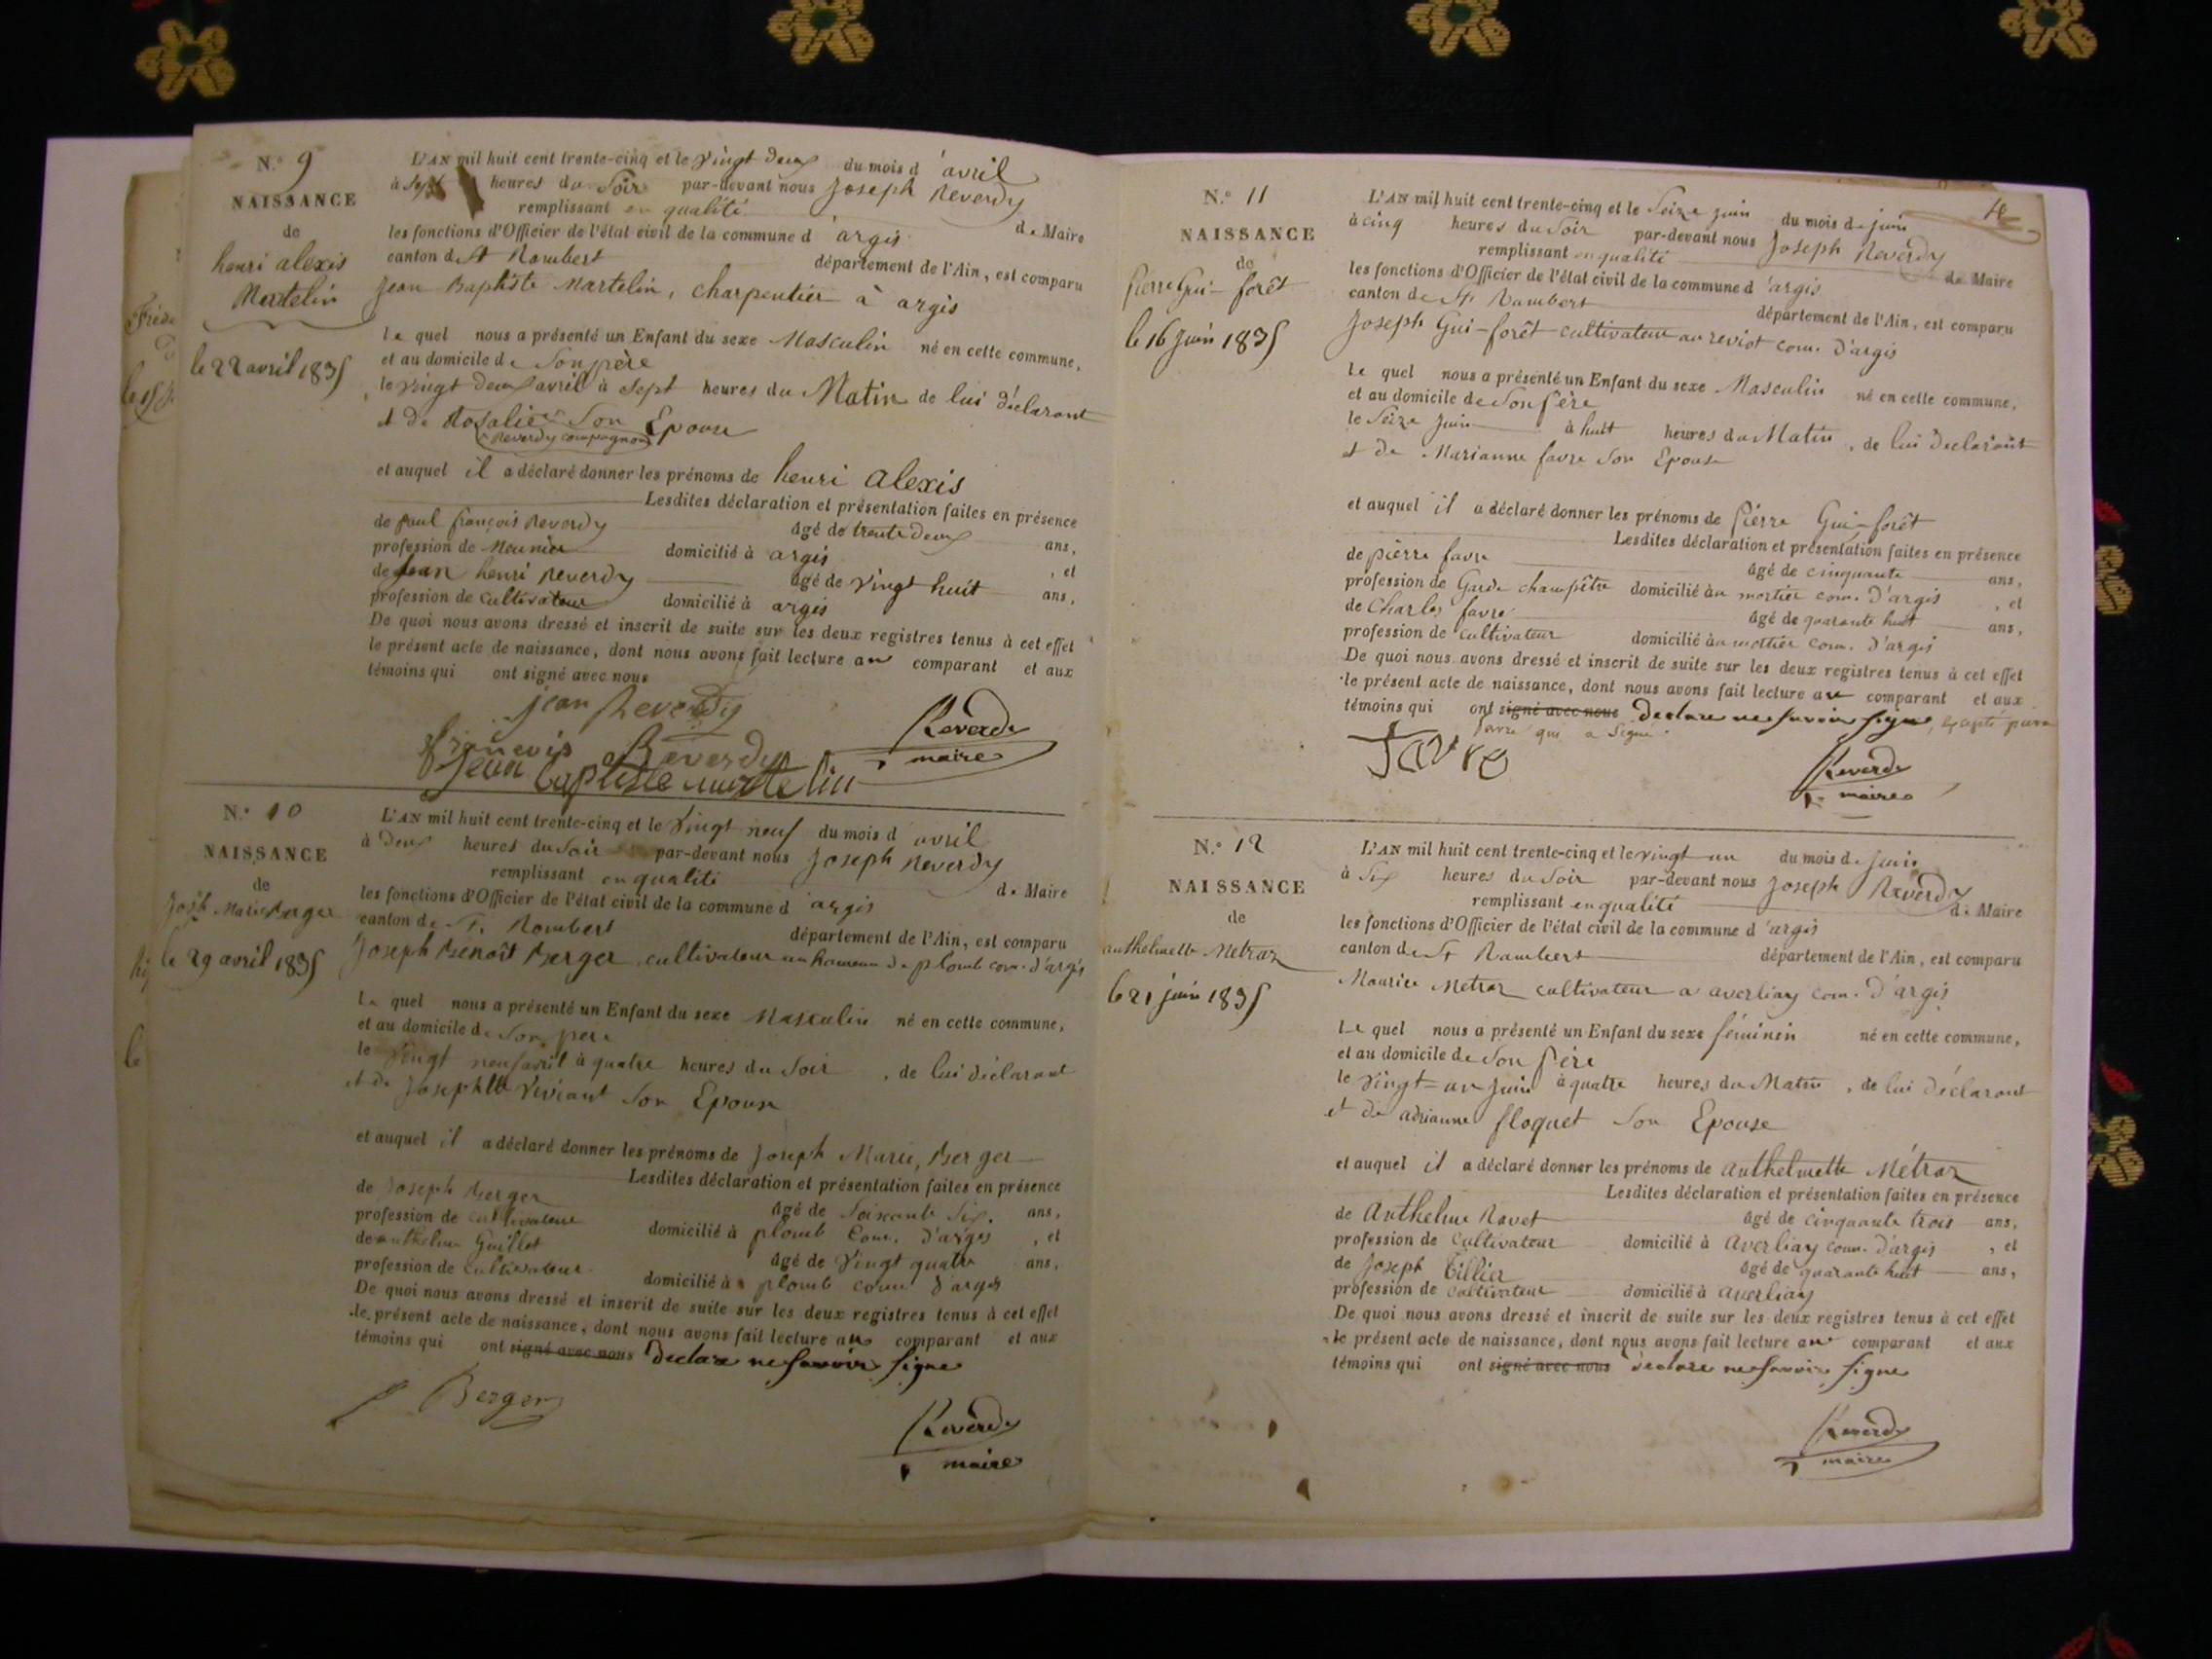 N.° 9
NAISSANCE
de
henri alexis
Martelin
le 22 avril 1835
L'AN mil huit cent trente-cinq et le vingt deux du mois d'avril
à sept heures du Soir par-devant nous Joseph Reverdy
remplissant en qualité de Maire
les fonctions d'Officier de l'état civil de la commune d'argis
canton de St Rambert département de l'Ain, est comparu
Jean Baptiste Martelin, charpentier à argis
le quel nous a présenté un Enfant du sexe Masculin né en cette commune,
et au domicile de Son père
le vingt deux avril à Sept heures du Matin de lui déclarant
et de Rosalie Son Epouse
Reverdy compagnon
et auquel il a déclaré donner les prénoms de henri alexis
Lesdites déclaration et présentation faites en présence
de paul françois Reverdy âgé de trente deux ans,
profession de Meunier domicilié à argis , et
de Jean henri Reverdy âgé de vingt huit ans,
profession de cultivateur domicilié à argis
De quoi nous avons dressé et inscrit de suite sur les deux registres tenus à cet effet
le présent acte de naissance, dont nous avons fait lecture au comparant et aux
témoins qui ont signé avec nous
jean Reverdy
françois Reverdy
Jean baptiste martelin
Reverdy
maire
N.° 10
NAISSANCE
de
Josph Marie Berger
le 29 avril 1835
L'AN mil huit cent trente-cinq et le vingt neuf du mois d avril
à deux heures du Soir par-devant nous Joseph Reverdy
remplissant en qualité de Maire
les fonctions d'Officier de l'état civil de la commune d argis
canton de St. Rambert département de l'Ain, est comparu
Joseph Benoît Berger, cultivateur au hameau de plomb com. d'argis
le quel nous a présenté un Enfant du sexe Masculin né en cette commune,
et au domicile de Son pere
le vingt neuf avril à quatre heures du Soir , de lui déclarant
et de Josephtte Viviant Son Epouse
et auquel il a déclaré donner les prénoms de Joseph Marie, Berger
Lesdites déclaration et présentation faites en présence
de Joseph Berger âgé de Soixante Six. ans,
profession de cultivateur domicilié à plomb Com. d'argis , et
de anthelme Guillot âgé de vingt quatre ans,
profession de cultivateur domicilié à plomb com. d'argis
De quoi nous avons dressé et inscrit de suite sur les deux registres tenus à cet effet
le présent acte de naissance, dont nous avons fait lecture au comparant et aux
témoins qui ont signé avec nous Declare ne Savoir Signe
Berger
Reverdy
maire
N.° 11
NAISSANCE
de
Pierre Gui-forêt
le 16 Juin 1835
L'AN mil huit cent trente-cinq et le Seize juin du mois de juin
à cinq heures du Soir par-devant nous Joseph Reverdy
remplissant en qualité de Maire
les fonctions d'Officier de l'état civil de la commune d'argis
canton de St Rambert département de l'Ain, est comparu
Joseph Gui-forêt cultivateur au reviot com. d'argis
le quel nous a présenté un Enfant du sexe Masculin né en cette commune,
et au domicile de Son Père
le Seize Juin à huit heures du Matin , de lui Declarant
et de Marianne favre Son Epouse
et auquel il a déclaré donner les prénoms de Pierre Gui-forêt
Lesdites déclaration et présentation faites en présence
de pierre favre âgé de cinquante ans,
profession de Garde champêtre domicilié au mortier com. d'argis , et
de Charles favre âgé de quarante huit ans,
profession de cultivateur domicilié au mortier com. d'argis
De quoi nous avons dressé et inscrit de suite sur les deux registres tenus à cet effet
le présent acte de naissance, dont nous avons fait lecture au comparant et aux
témoins qui ont signé avec nous Declare ne Savoir Signe,
favre qui a Signé.
Favre
Reverdy
maire
N.° 12
NAISSANCE
de
anthelmette Métraz
le 21 juin 1835
L'AN mil huit cent trente-cinq et le vingt un du mois de Juin
à Six heures du Soir par-devant nous Joseph Reverdy
remplissant en qualité de Maire
les fonctions d'Officier de l'état civil de la commune d'argis
canton de St Rambert département de l'Ain, est comparu
Maurice Métraz cultivateur a averliay com. d'argis
le quel nous a présenté un Enfant du sexe féminin né en cette commune,
et au domicile de Son Père
le vingt-un Juin à quatre heures du Matin , de lui Déclarant
et de adrianne floquet Son Epouse
et auquel il a déclaré donner les prénoms de anthelmette Métraz
Lesdites déclaration et présentation faites en présence
de Anthelme Ravet âgé de cinquante trois ans,
profession de Cultivateur domicilié à Averliay com. d'argis , et
de Joseph Tillier âgé de quarante huit ans,
profession de Cultivateur domicilié à averliay
De quoi nous avons dressé et inscrit de suite sur les deux registres tenus à cet effet
le présent acte de naissance, dont nous avons fait lecture au comparant et aux
témoins qui ont signé avec nous declare ne Savoir Signe
Reverdy
maire